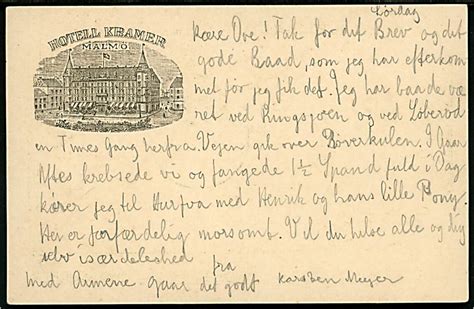 HOTELL KRAMER
MALMÖ
Lördag
kære Ove! Tak for dit Brev og det
gode Raad, som jeg har efterkom
met før jeg fik det. Jeg har baade væ
ret ved Ringsjøen og ved Løberöd
en Times Gang herfra. Vejen gik over Boverkulen. I Gaar
Aftes krebsede vi og fangede 1½ Spand fuld i Dag
kører jeg til Hurfva med Henrik og hans lille Pony.
Her er forfærdelig morsomt. Vil du hilse alle og dig
selv især deleshed fra
med Armene gaar det godt Karsten Meyer